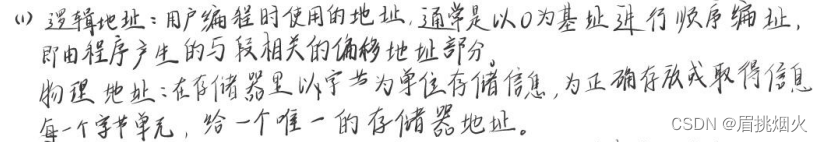 (1) 逻辑地址：用户编程时使用的地址，通常是以0为基址进行顺序编址，
即由程序产生的与段相关的偏移地址部分。
物理地址：在存储器里以字节为单位存储信息，为正确存放或取得信息
每一个字节单元，给一个唯一的存储器地址。
CSDN @眉挑烟火